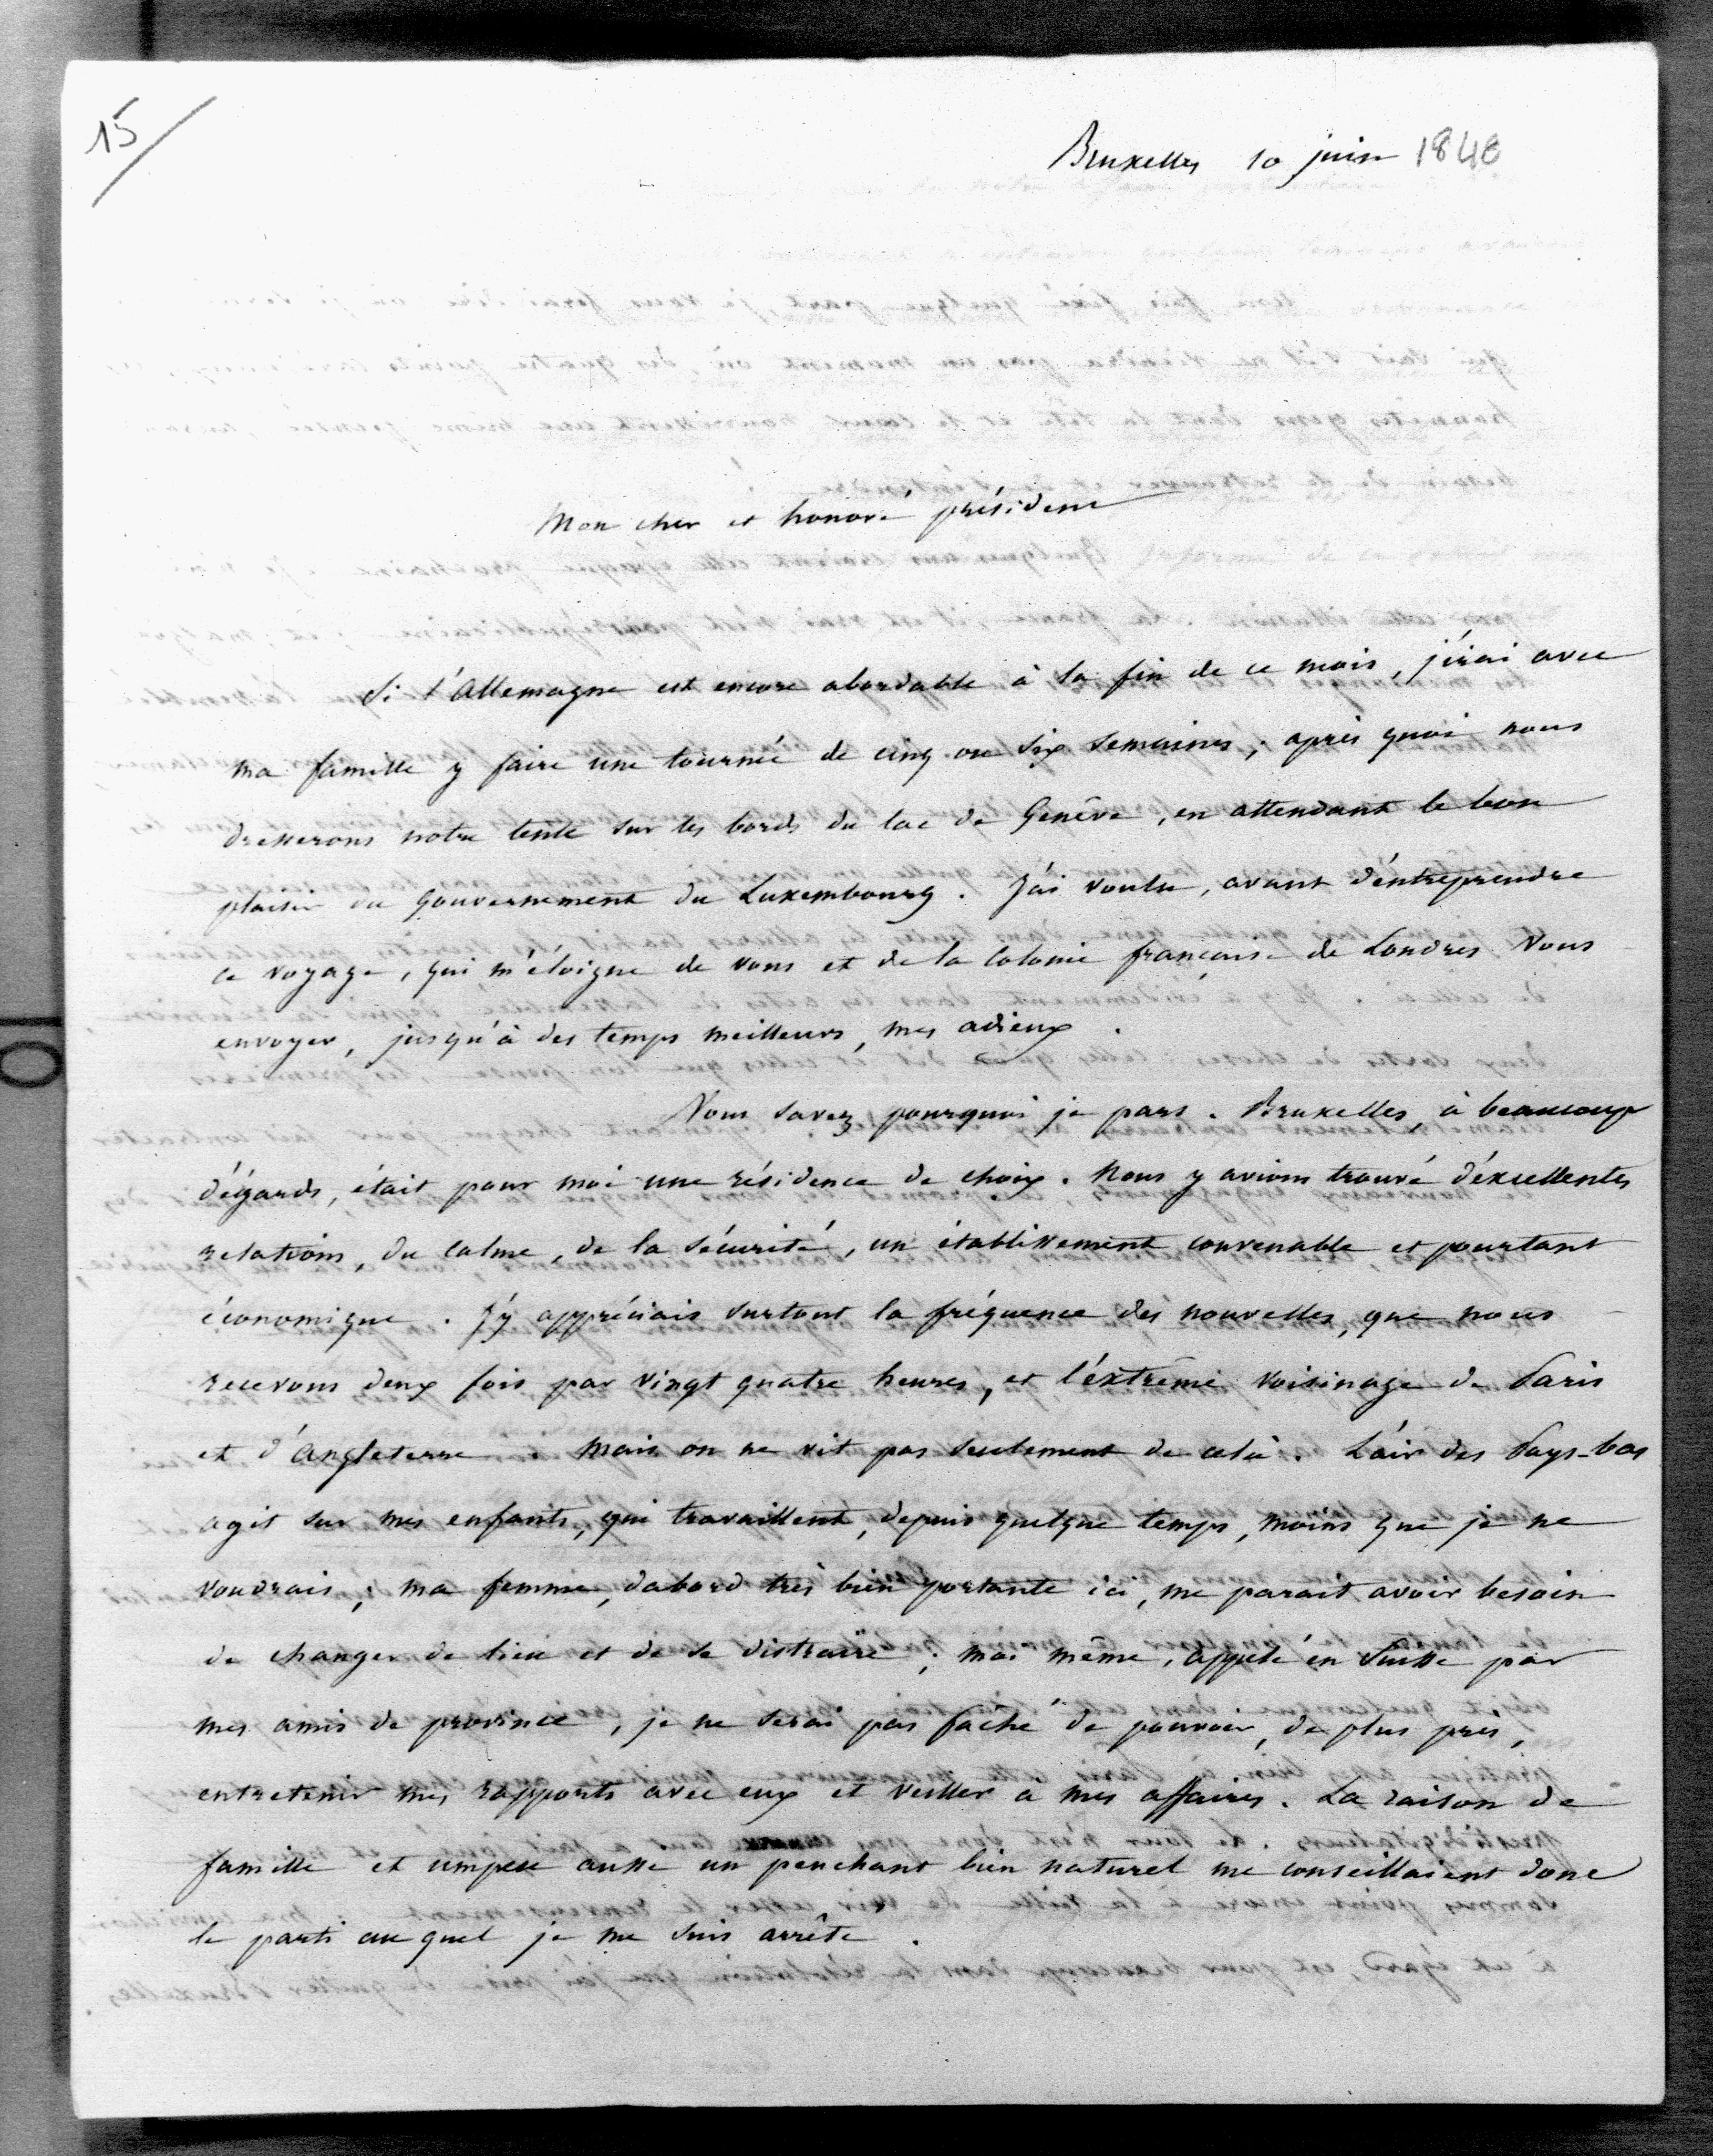 15
Bruxelles 10 juin 1848
Mon cher et honoré président
Si l'Allemagne est encore abordable à la fin de ce mois, j'irai avec
ma famille y faire une tournée de cinq ou six semaines ; après quoi nous
dresserons notre tente sur les bords du lac de Genêve, en attendant le bon
plaisir du Gouvernement du Luxembourg. J'ai voulu, avant d'entreprendre
ce voyage, qui m'éloigne de vous et de la Colonie française de Londres Vous
envoyer, jusqu'à des temps meilleurs, mes adieux.
Vous savez pourquoi je pars. Bruxelles, à beaucoup
d'égards, était pour moi une résidence de choix. Nous y avions trouvé d'excellentes
relations, du calme, de la sécurité, un établissement convenable et pourtant
économique. J'y appréciais surtout la fréquence des nouvelles, que nous
recevons deux fois par vingt quatre heures, et l'extrême voisinage de Paris
et d'Angleterre. Mais on ne vit pas seulement de celà. L'air des Pays-bas
agit sur mes enfants, qui travaillent, depuis quelque temps, moins que je ne
voudrais ; ma femme, dabord très bien portante ici, me parait avoir besoin
de changer de lieu et de se distraire ; moi même, appelé en Suisse par
mes amis de province, je ne serai pas fâché de pouvoir, de plus près,
entretenir mes rapports avec eux et veiller a mes affaires. La raison de
famille et umpeu aussi un penchant bien naturel me conseillaient donc
le parti au quel je me suis arrêté.